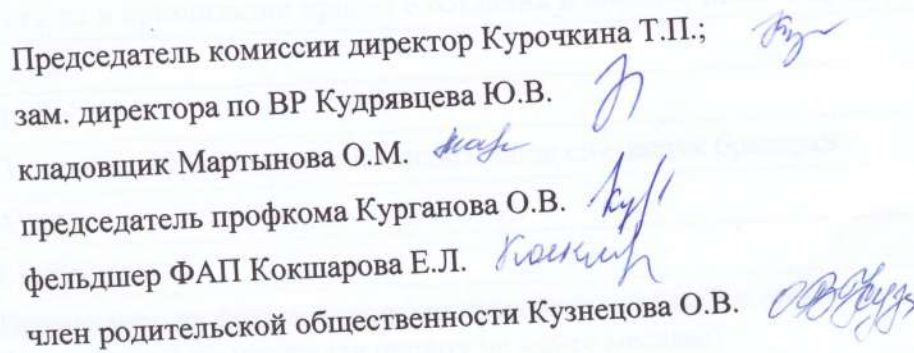 Председатель комиссии директор Курочкина Т.П.;
зам. директора по ВР Кудрявцева Ю.В.
кладовщик Мартынова О.М.
председатель профкома Курганова О.В.
фельдшер ФАП Кокшарова Е.Л.
член родительской общественности Кузнецова О.В.